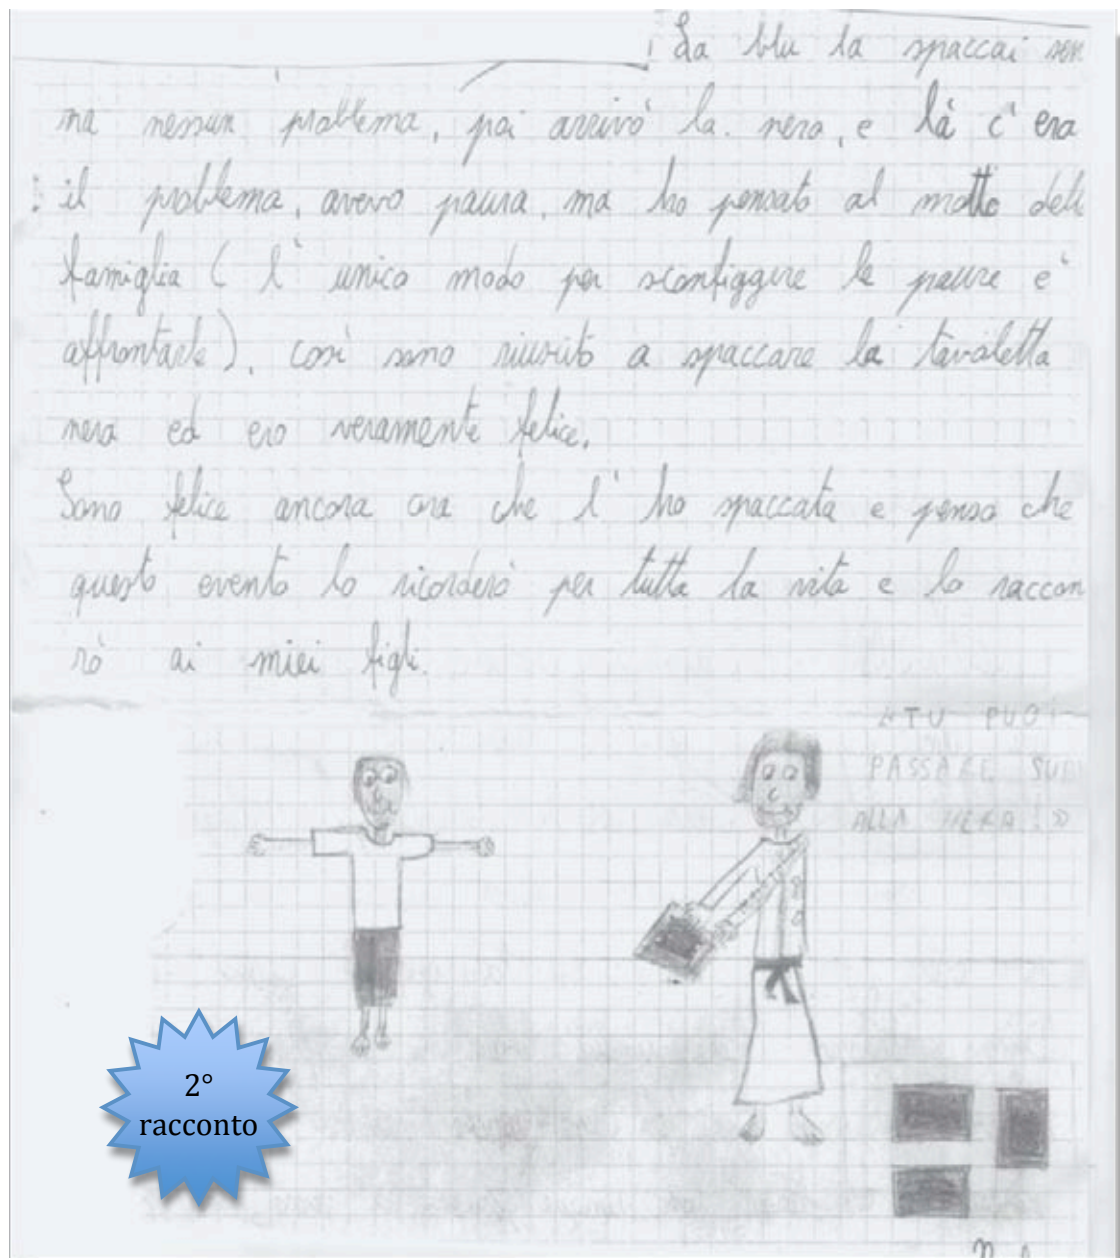 La blu la spaccai sen
za nessun problema, poi arrivò la nera, e là c'era
il problema, avevo paura, ma ho pensato al motto dell
famiglia ( l'unico modo per sconfiggere le paure è
affrontarle), così sono riuscito a spaccare la tavoletta
nera ed ero veramente felice.
Sono felice ancora ora che l'ho spaccata e penso che
questo evento lo ricorderò per tutta la vita e lo raccon
rò ai miei figli.
«TU PUOI
PASSARE SUB
ALLA NERA!»
2°
racconto